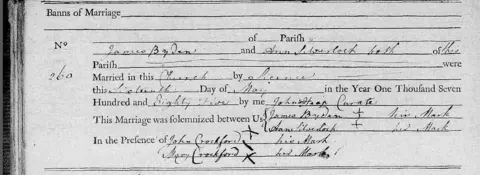 Banns of Marriage
of Parish
No James Byden and Ann Silverlock both of this
Parish were
260 Married in this Church by Licence
this Sixteenth Day of May in the Year One Thousand Seven
Hundred and Eighty Five by me John Curate
This Marriage was solemnized between Us James Byden + his Mark
Ann Silverlock + her Mark
In the Presence of John Crockford X his Mark
Mary Crockford X her Mark